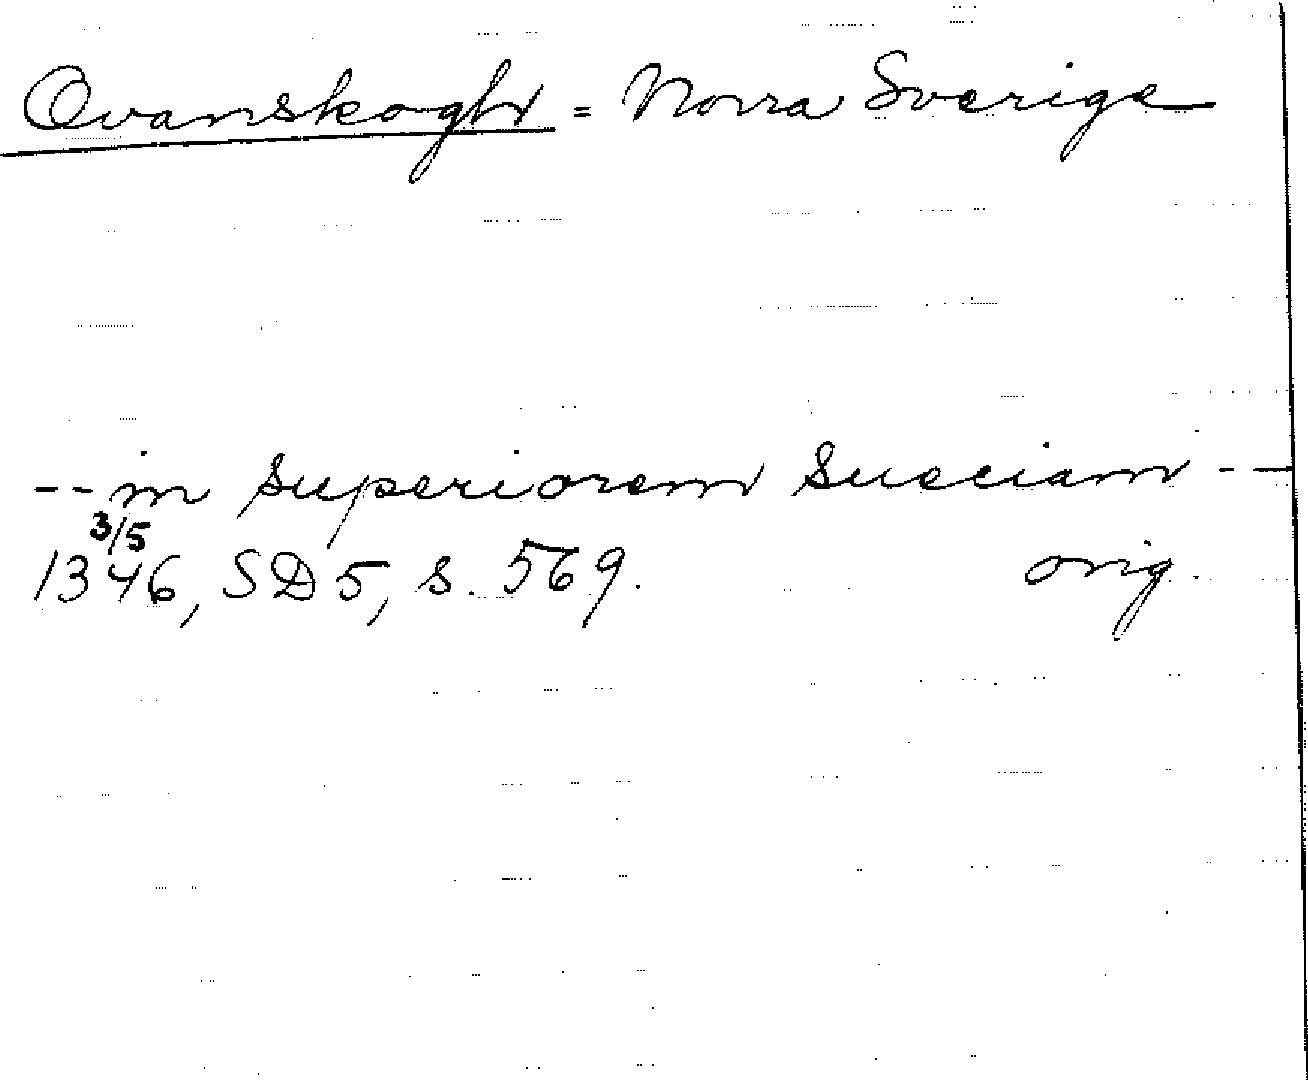 Ovanskoghx = Norra Sverige
-- in superiorem Sueciam --
3/5
1346, SD 5, s. 569. orig.